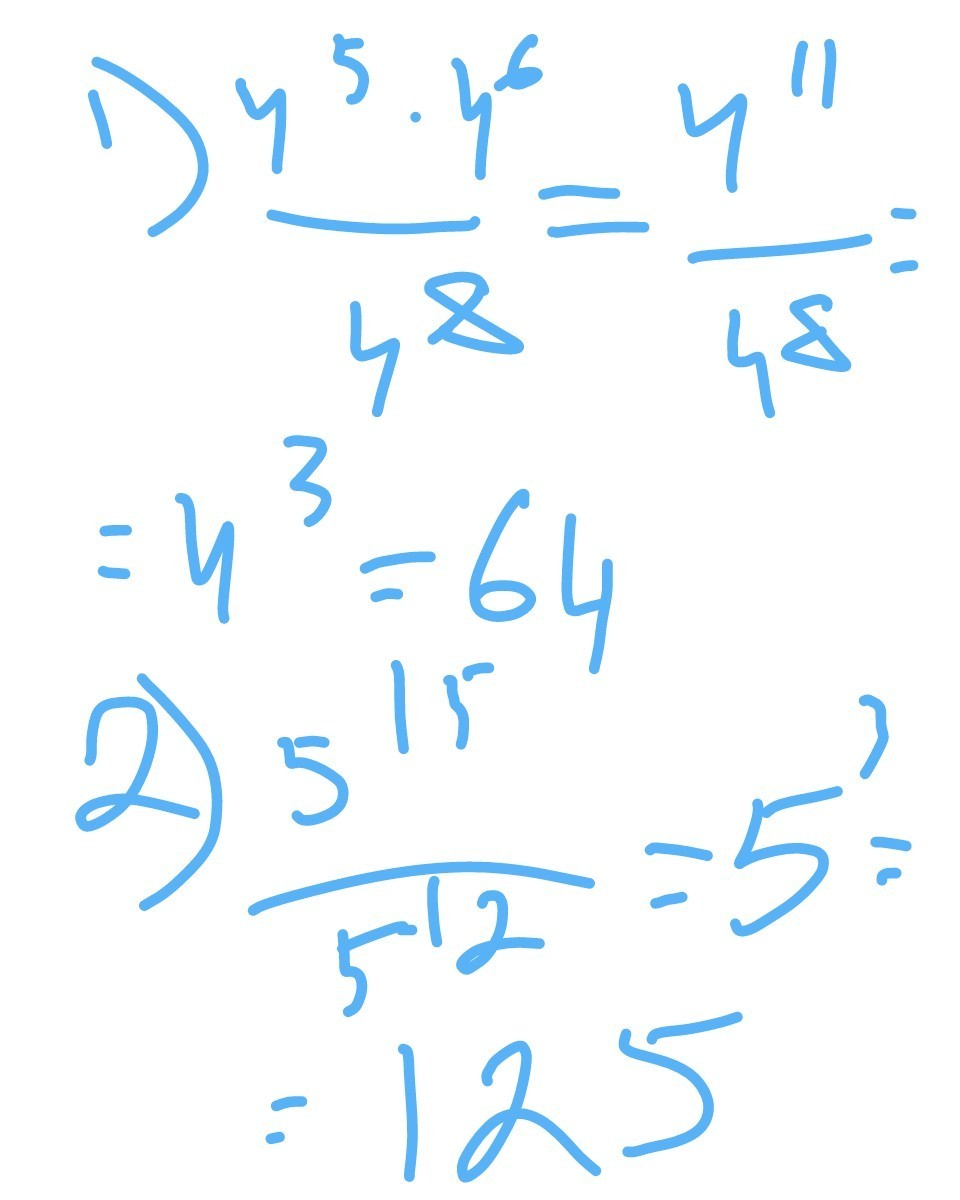 1) 4⁵ · 4⁶ / 4⁸ = 4¹¹ / 4⁸ =
= 4³ = 64
2) 5¹⁵ / 5¹² = 5³ =
= 125